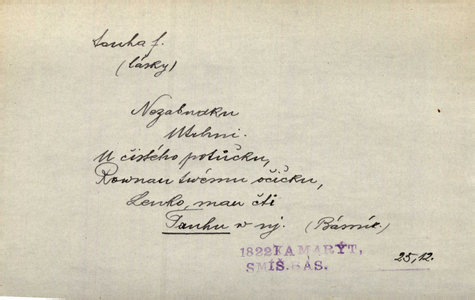 touha f.
(lásky)
Nezabudku
Utrhni.
U čistého potůčku,
Rownau twému očičku,
Lenko, mau čti
Tauhu w nj. (Básník)
1822 KAMARÝT,
SMÍŠ.BÁS.
25,12.